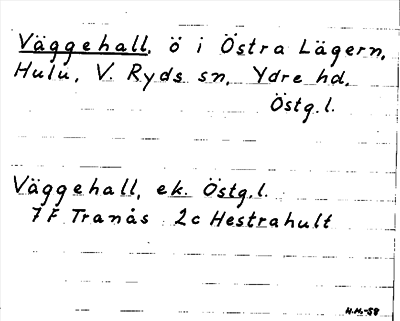 Väggehall, ö i Östra Lägern,
Hulu, V. Ryds sn, Ydre hd,
Östg.l.
Väggehall, ek. Östg.l.
7 F Tranås 2c Hestrahult
H.M.-58